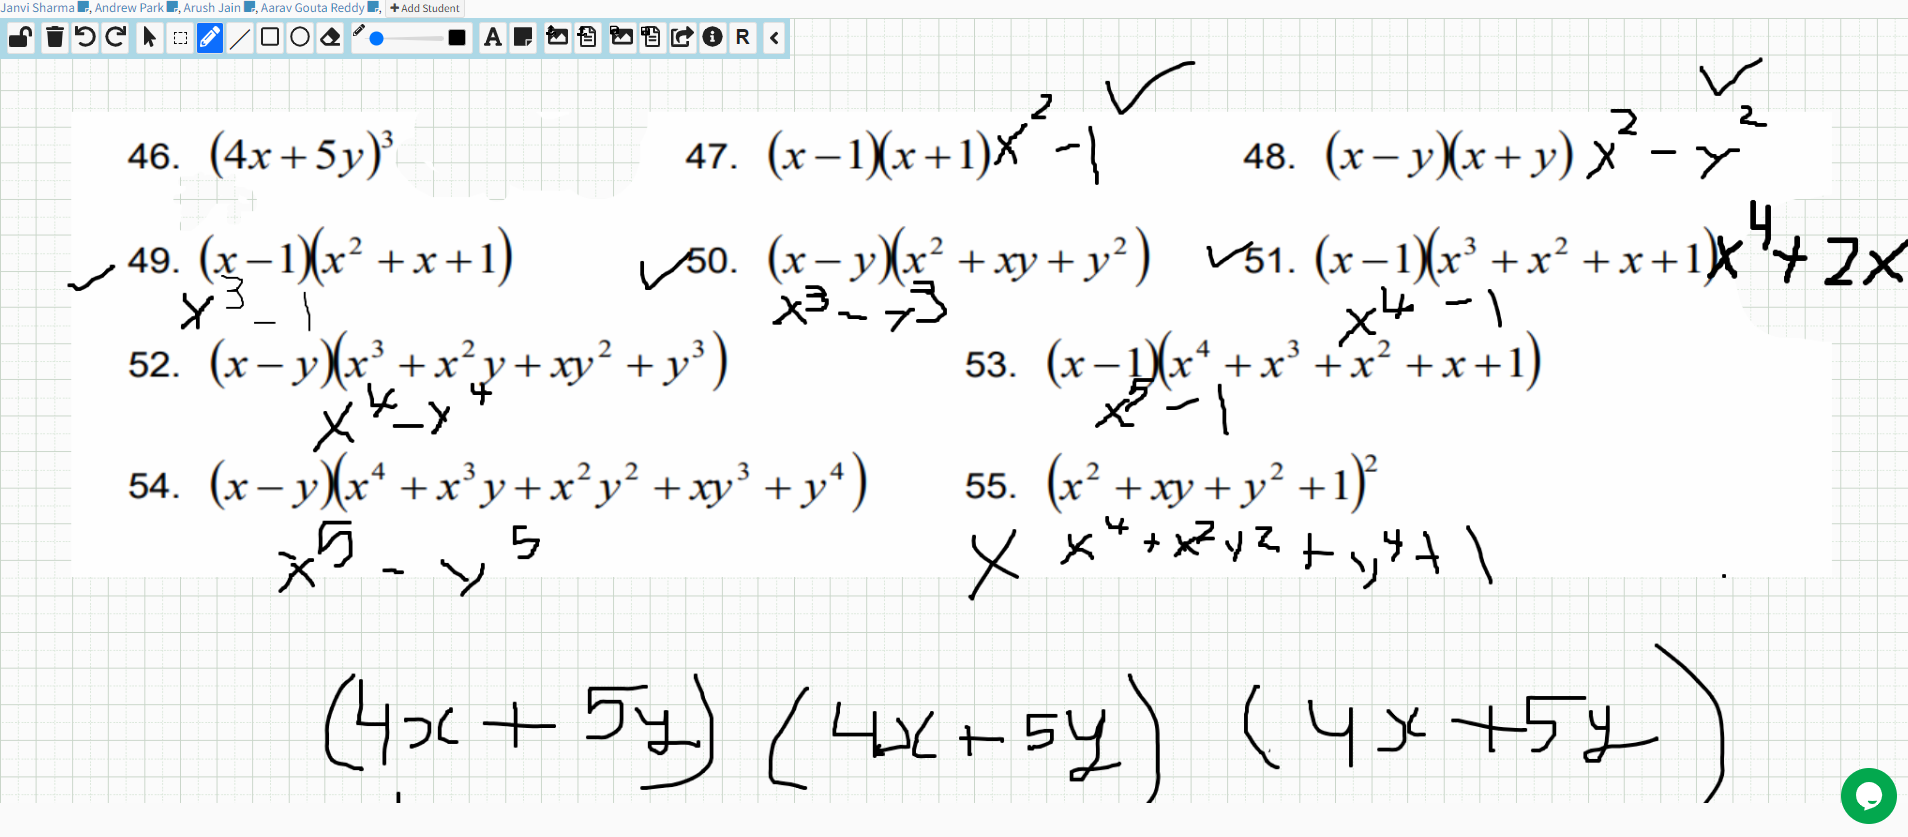 Janvi Sharma, Andrew Park, Arush Jain, Aarav Gouta Reddy, + Add Student
A i R
46. (4x + 5y)³ 47. (x − 1)(x + 1) x² − 1 48. (x − y)(x + y) x² − y²
49. (x − 1)(x² + x + 1) 50. (x − y)(x² + xy + y²) 51. (x − 1)(x³ + x² + x + 1) x⁴ + 2x
x³ − 1 x³ − y³ x⁴ − 1
52. (x − y)(x³ + x²y + xy² + y³) 53. (x − 1)(x⁴ + x³ + x² + x + 1)
x⁴ − y⁴ x⁵ − 1
54. (x − y)(x⁴ + x³y + x²y² + xy³ + y⁴) 55. (x² + xy + y² + 1)²
x⁵ − y⁵ x⁴ + x²y² + y⁴ + 1
(4x + 5y) (4x + 5y) (4x + 5y)